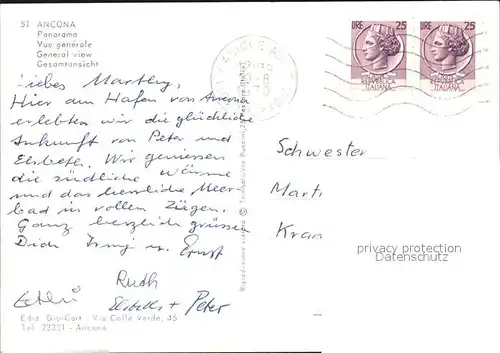 57 ANCONA
Panorama
Vue générale
General view
Gesamtansicht
Liebes Marthly,
Hier am Hafen von Ancona
erlebten wir die glückliche
Ankunft von Peter und
Elsbeth. Wir geniessen
die südliche Wärme
und das herrliche Meer-
bad in vollen Zügen.
Ganz herzlich grüssen
Dich Irmg u. Ernst
Ruth
Elsbeth + Peter
Ediz. Gio-Cart - Via Colle Verde, 45
Tel. 23331 - Ancona
Riproduzione vietata
LIRE 25
REPUBBLICA
ITALIANA
LIRE 25
REPUBBLICA
ITALIANA
Schwester
Marti
Kran
privacy protection
Datenschutz